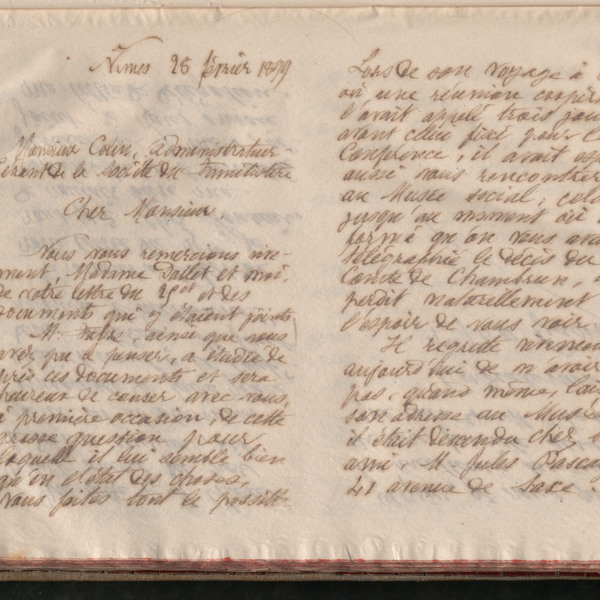 Nîmes 28 février 1899
Monsieur Colin, administrateur
gérant de la société du Familistère
Cher Monsieur,
Nous vous remercions vive-
ment, Madame Dallet et moi,
de votre lettre du 25 et et des
documents qui y étaient joints
M. Fabre, ainsi que vous
avez pu le penser, a étudié de
près ces documents et sera
heureux de causer avec vous,
à première occasion, de cette
grosse question pour
laquelle il lui semble bien
qu'en l'état des choses,
vous faites tout le possible
Lors de son voyage à
où une réunion coopér
l'avait appelé trois jou
avant celui fixé pour l
Conférence, il avait esp
aussi vous rencontrer
au Musée social; cela
jusqu'au moment où
formé qu'on vous ava
télégraphié le décès du
Comte de Chambrun,
perdit naturellement
l'espoir de vous voir.
Il regrette vivement
aujourd'hui de n'avoir
pas, quand même, lais
son adresse au Musé
il était descendu chez
ami M. Jules Pascal
41 avenue de Saxe.